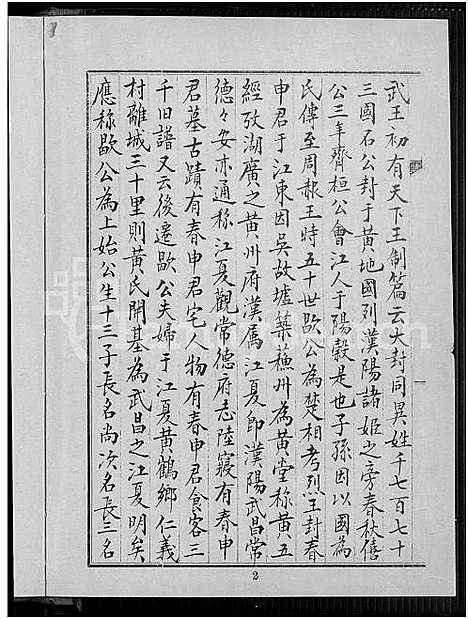 武王初有天下王制篇云大封同異姓千七百七十
三國石公封于黄地國列漢陽諸姬之旁春秋僖
公三年齊桓公會江人于陽穀是也子孫因以國為
氏傳至周赧王時五十世歇公為楚相考烈王封春
申君于江東因吳故墟築蘇州為黄堂稱黄五
經攷湖廣之黄州府漢属江夏即漢陽武昌常
德々安亦通称江夏觀常德府志陸寢有春申
君墓古蹟有春申君宅人物有春申君食客三
千旧譜又云後遷歇公夫婦于江夏黄鶴鄉仁義
村離城三十里則黄氏開基為武昌之江夏明矣
應稱歇公為上始公生十三子長名尚次名長三名
2